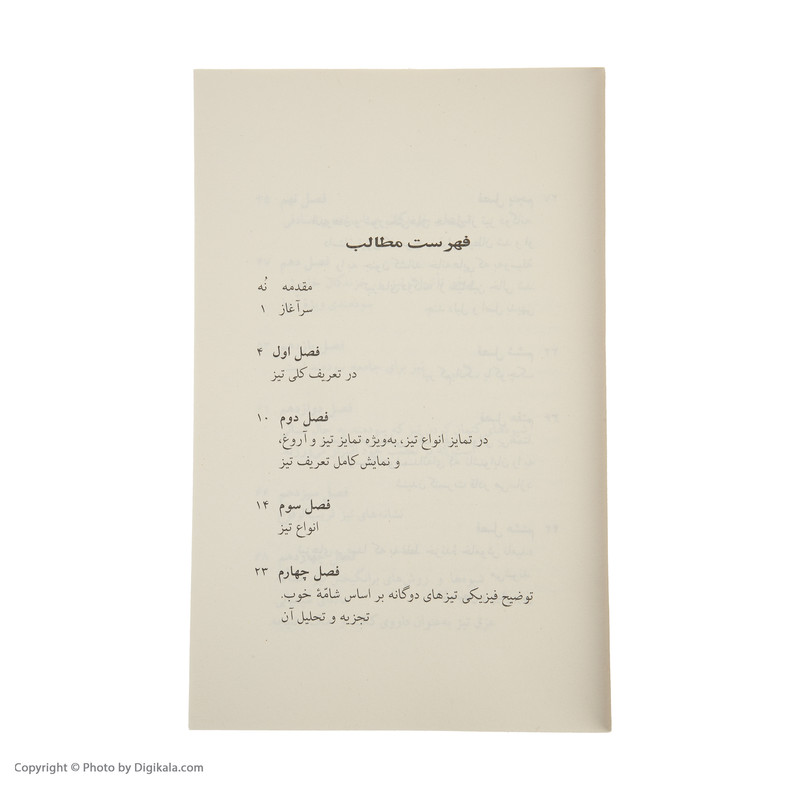 فهرست مطالب
مقدمه نُه
سرآغاز ۱
فصل اول ۴
در تعریف کلی تیز
فصل دوم ۱۰
در تمایز انواع تیز، به‌ویژه تمایز تیز و آروغ،
و نمایش کامل تعریف تیز
فصل سوم ۱۴
انواع تیز
فصل چهارم ۲۳
توضیح فیزیکی تیزهای دوگانه بر اساس شامّهٔ خوب.
تجزیه و تحلیل آن
Copyright © Photo by Digikala.com